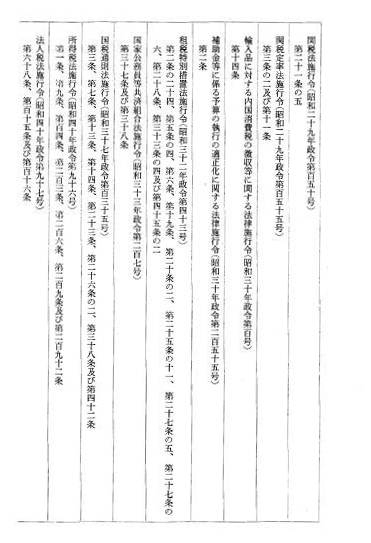 関税法施行令(昭和二十九年政令第百五十号)
第二十一条の五
関税定率法施行令(昭和二十九年政令第百五十五号)
第三条の二及び第十一条
輸入品に対する内国消費税の徴収等に関する法律施行令(昭和三十年政令第百号)
第十四条
補助金等に係る予算の執行の適正化に関する法律施行令(昭和三十年政令第二百五十五号)
第二条
租税特別措置法施行令(昭和三十二年政令第四十三号)
第二条の二十四、第五条の四、第六条、第十九条、第二十条の二、第二十五条の十一、第二十七条の五、第二十七条の
六、第二十八条、第三十三条の四及び第四十五条の二
国家公務員等共済組合法施行令(昭和三十三年政令第二百七号)
第三十七条及び第三十八条
国税通則法施行令(昭和三十七年政令第百三十五号)
第三条、第七条、第十三条、第十四条、第二十三条、第二十六条の二、第三十八条及び第四十二条
所得税法施行令(昭和四十年政令第九十六号)
第一条、第九条、第百四条、第二百三条、第二百六条、第二百九条及び第二百九十二条
法人税法施行令(昭和四十年政令第九十七号)
第六十八条、第百十五条及び第百十六条